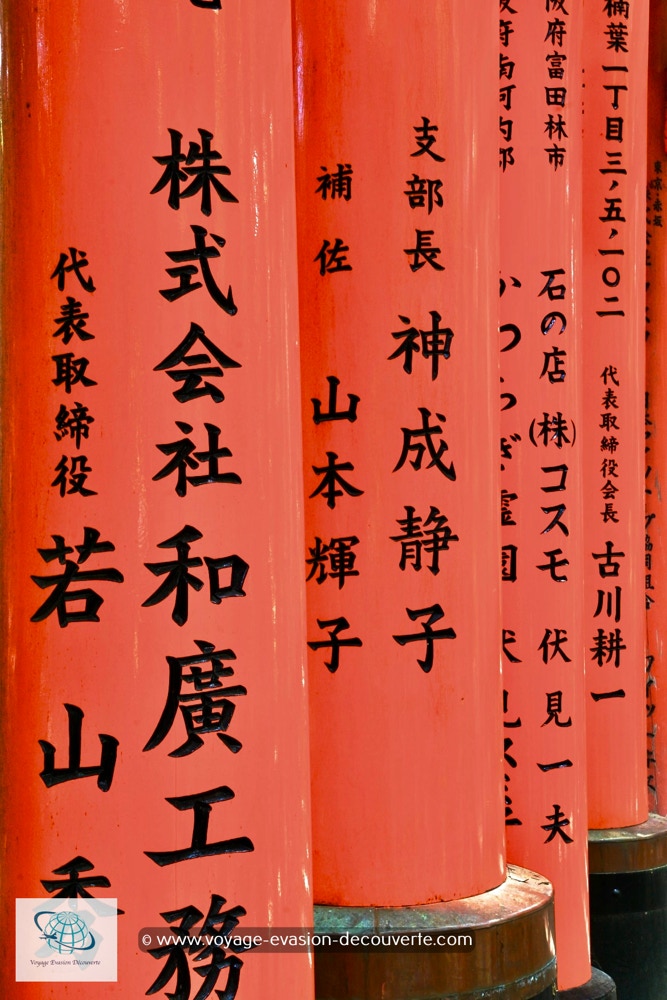 株式会社和廣工務
代表取締役 若山
支部長 神成静子
補佐 山本輝子
阪府富田林市 石の店 (株)コスモ 伏見一夫
府南河内郡 かつらぎ霊園 伏見
楠葉一丁目三ノ五ノ一〇二
代表取締役会長 古川耕一
Voyage Evasion Découverte
© www.voyage-evasion-decouverte.com